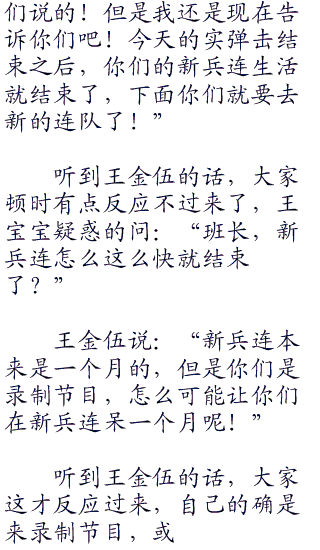 们说的！但是我还是现在告
诉你们吧！今天的实弹击结
束之后，你们的新兵连生活
就结束了，下面你们就要去
新的连队了！”
听到王金伍的话，大家
顿时有点反应不过来了，王
宝宝疑惑的问：“班长，新
兵连怎么这么快就结束
了？”
王金伍说：“新兵连本
来是一个月的，但是你们是
录制节目，怎么可能让你们
在新兵连呆一个月呢！”
听到王金伍的话，大家
这才反应过来，自己的确是
来录制节目，或